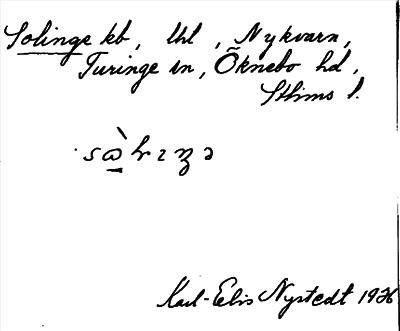 Solinge kb, lhl, Nykvarn,
Turinge sn, Õknebo hd,
Sthlms l.
Karl-Eric Nystedt 1926